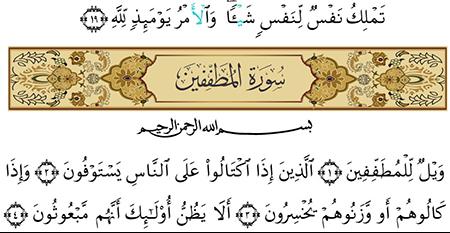 تَمْلِكُ نَفْسٌ لِّنَفْسٍ شَيْـًٔا وَالْأَمْرُ يَوْمَئِذٍ لِّلَّهِ ﴿١٩﴾
سُورَةُ المُطَفِّفِين
بسم الله الرحمن الرحيم
وَيْلٌ لِّلْمُطَفِّفِينَ ﴿١﴾ الَّذِينَ إِذَا اكْتَالُوا۟ عَلَى النَّاسِ يَسْتَوْفُونَ ﴿٢﴾ وَإِذَا
كَالُوهُمْ أَو وَّزَنُوهُمْ يُخْسِرُونَ ﴿٣﴾ أَلَا يَظُنُّ أُو۟لَـٰٓئِكَ أَنَّهُم مَّبْعُوثُونَ ﴿٤﴾